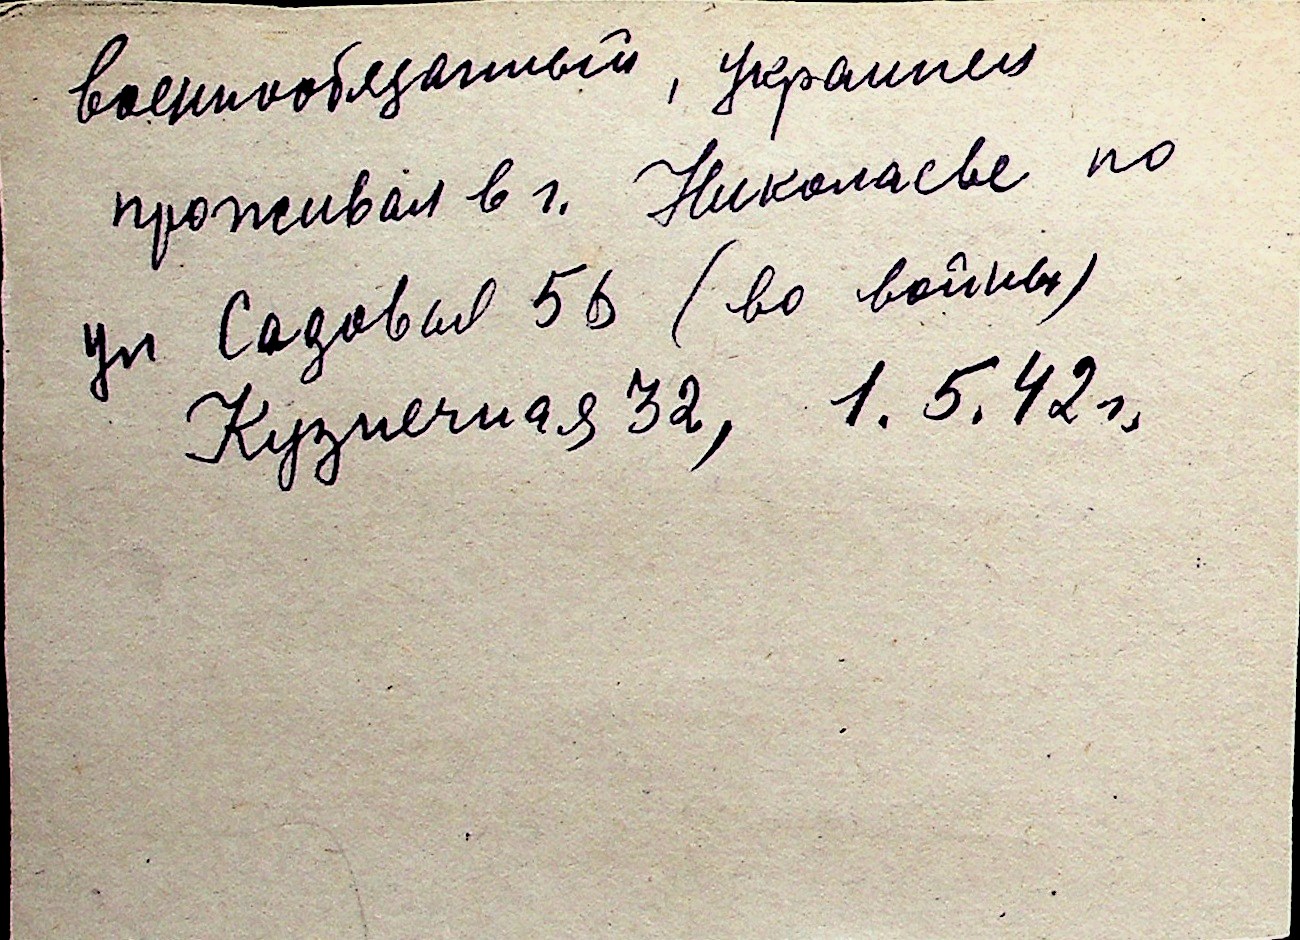 военнообязанный, украинец
проживал в г. Николаеве по
ул Садовая 5Б (до войны)
Кузнечная 32, 1.5.42 г.